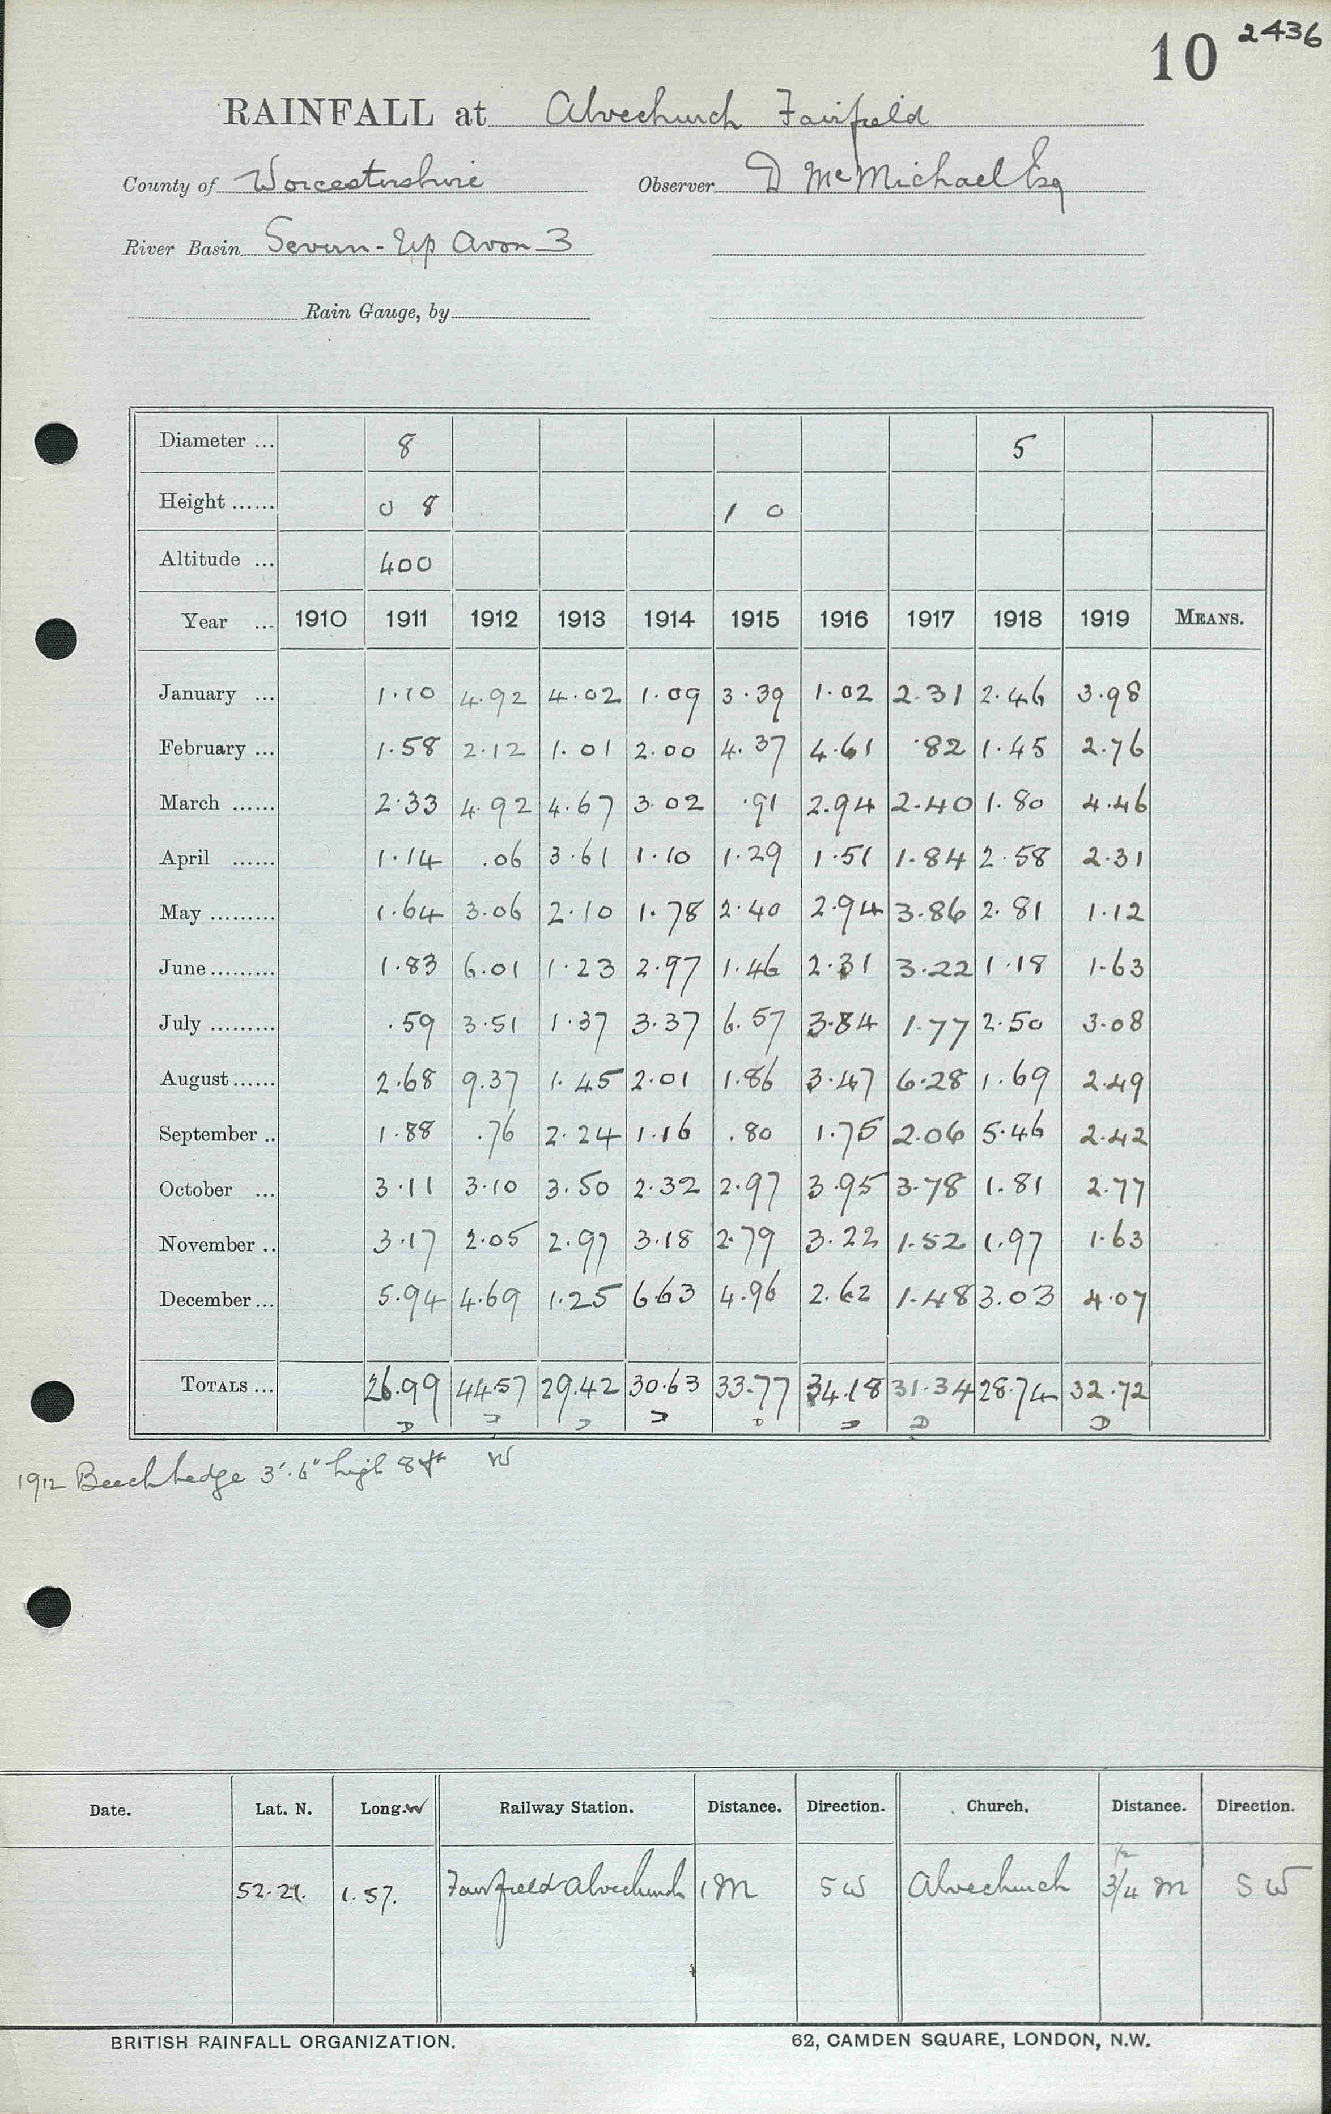 10 2436
RAINFALL at Alvechurch Fairfield
County of Worcestershire Observer D McMichael Esq
River Basin Severn - Up Avon 3
Rain Gauge, by
Diameter ... 8 5
Height ...... 0 8 1 0
Altitude ... 400
Year ... 1910 1911 1912 1913 1914 1915 1916 1917 1918 1919 MEANS.
January ... 1.10 4.92 4.02 1.09 3.39 1.02 2.31 2.46 3.98
February ... 1.58 2.12 1.01 2.00 4.37 4.61 .82 1.45 2.76
March ...... 2.33 4.92 4.67 3.02 .91 2.94 2.40 1.80 4.46
April ...... 1.14 .06 3.61 1.10 1.29 1.51 1.84 2.58 2.31
May ......... 1.64 3.06 2.10 1.78 2.40 2.94 3.86 2.81 1.12
June ......... 1.83 6.01 1.23 2.97 1.46 2.31 3.22 1.18 1.63
July ......... .59 3.51 1.37 3.37 6.57 3.84 1.77 2.50 3.08
August ...... 2.68 9.37 1.45 2.01 1.86 3.47 6.28 1.69 2.49
September .. 1.88 .76 2.24 1.16 .80 1.75 2.06 5.46 2.42
October ... 3.11 3.10 3.50 2.32 2.97 3.95 3.78 1.81 2.77
November .. 3.17 2.05 2.97 3.18 2.79 3.22 1.52 1.97 1.63
December ... 5.94 4.69 1.25 6.63 4.96 2.62 1.48 3.03 4.07
TOTALS ... 26.99 44.57 29.42 30.63 33.77 34.18 31.34 28.74 32.72
D D D D D D D D
1912 Beech hedge 3'.6" high 8 ft W
Date. Lat. N. Long. W Railway Station. Distance. Direction. Church. Distance. Direction.
52.21. 1.57. Fairfield Alvechurch 1 M SW Alvechurch 3/4 M SW
BRITISH RAINFALL ORGANIZATION. 62, CAMDEN SQUARE, LONDON, N.W.